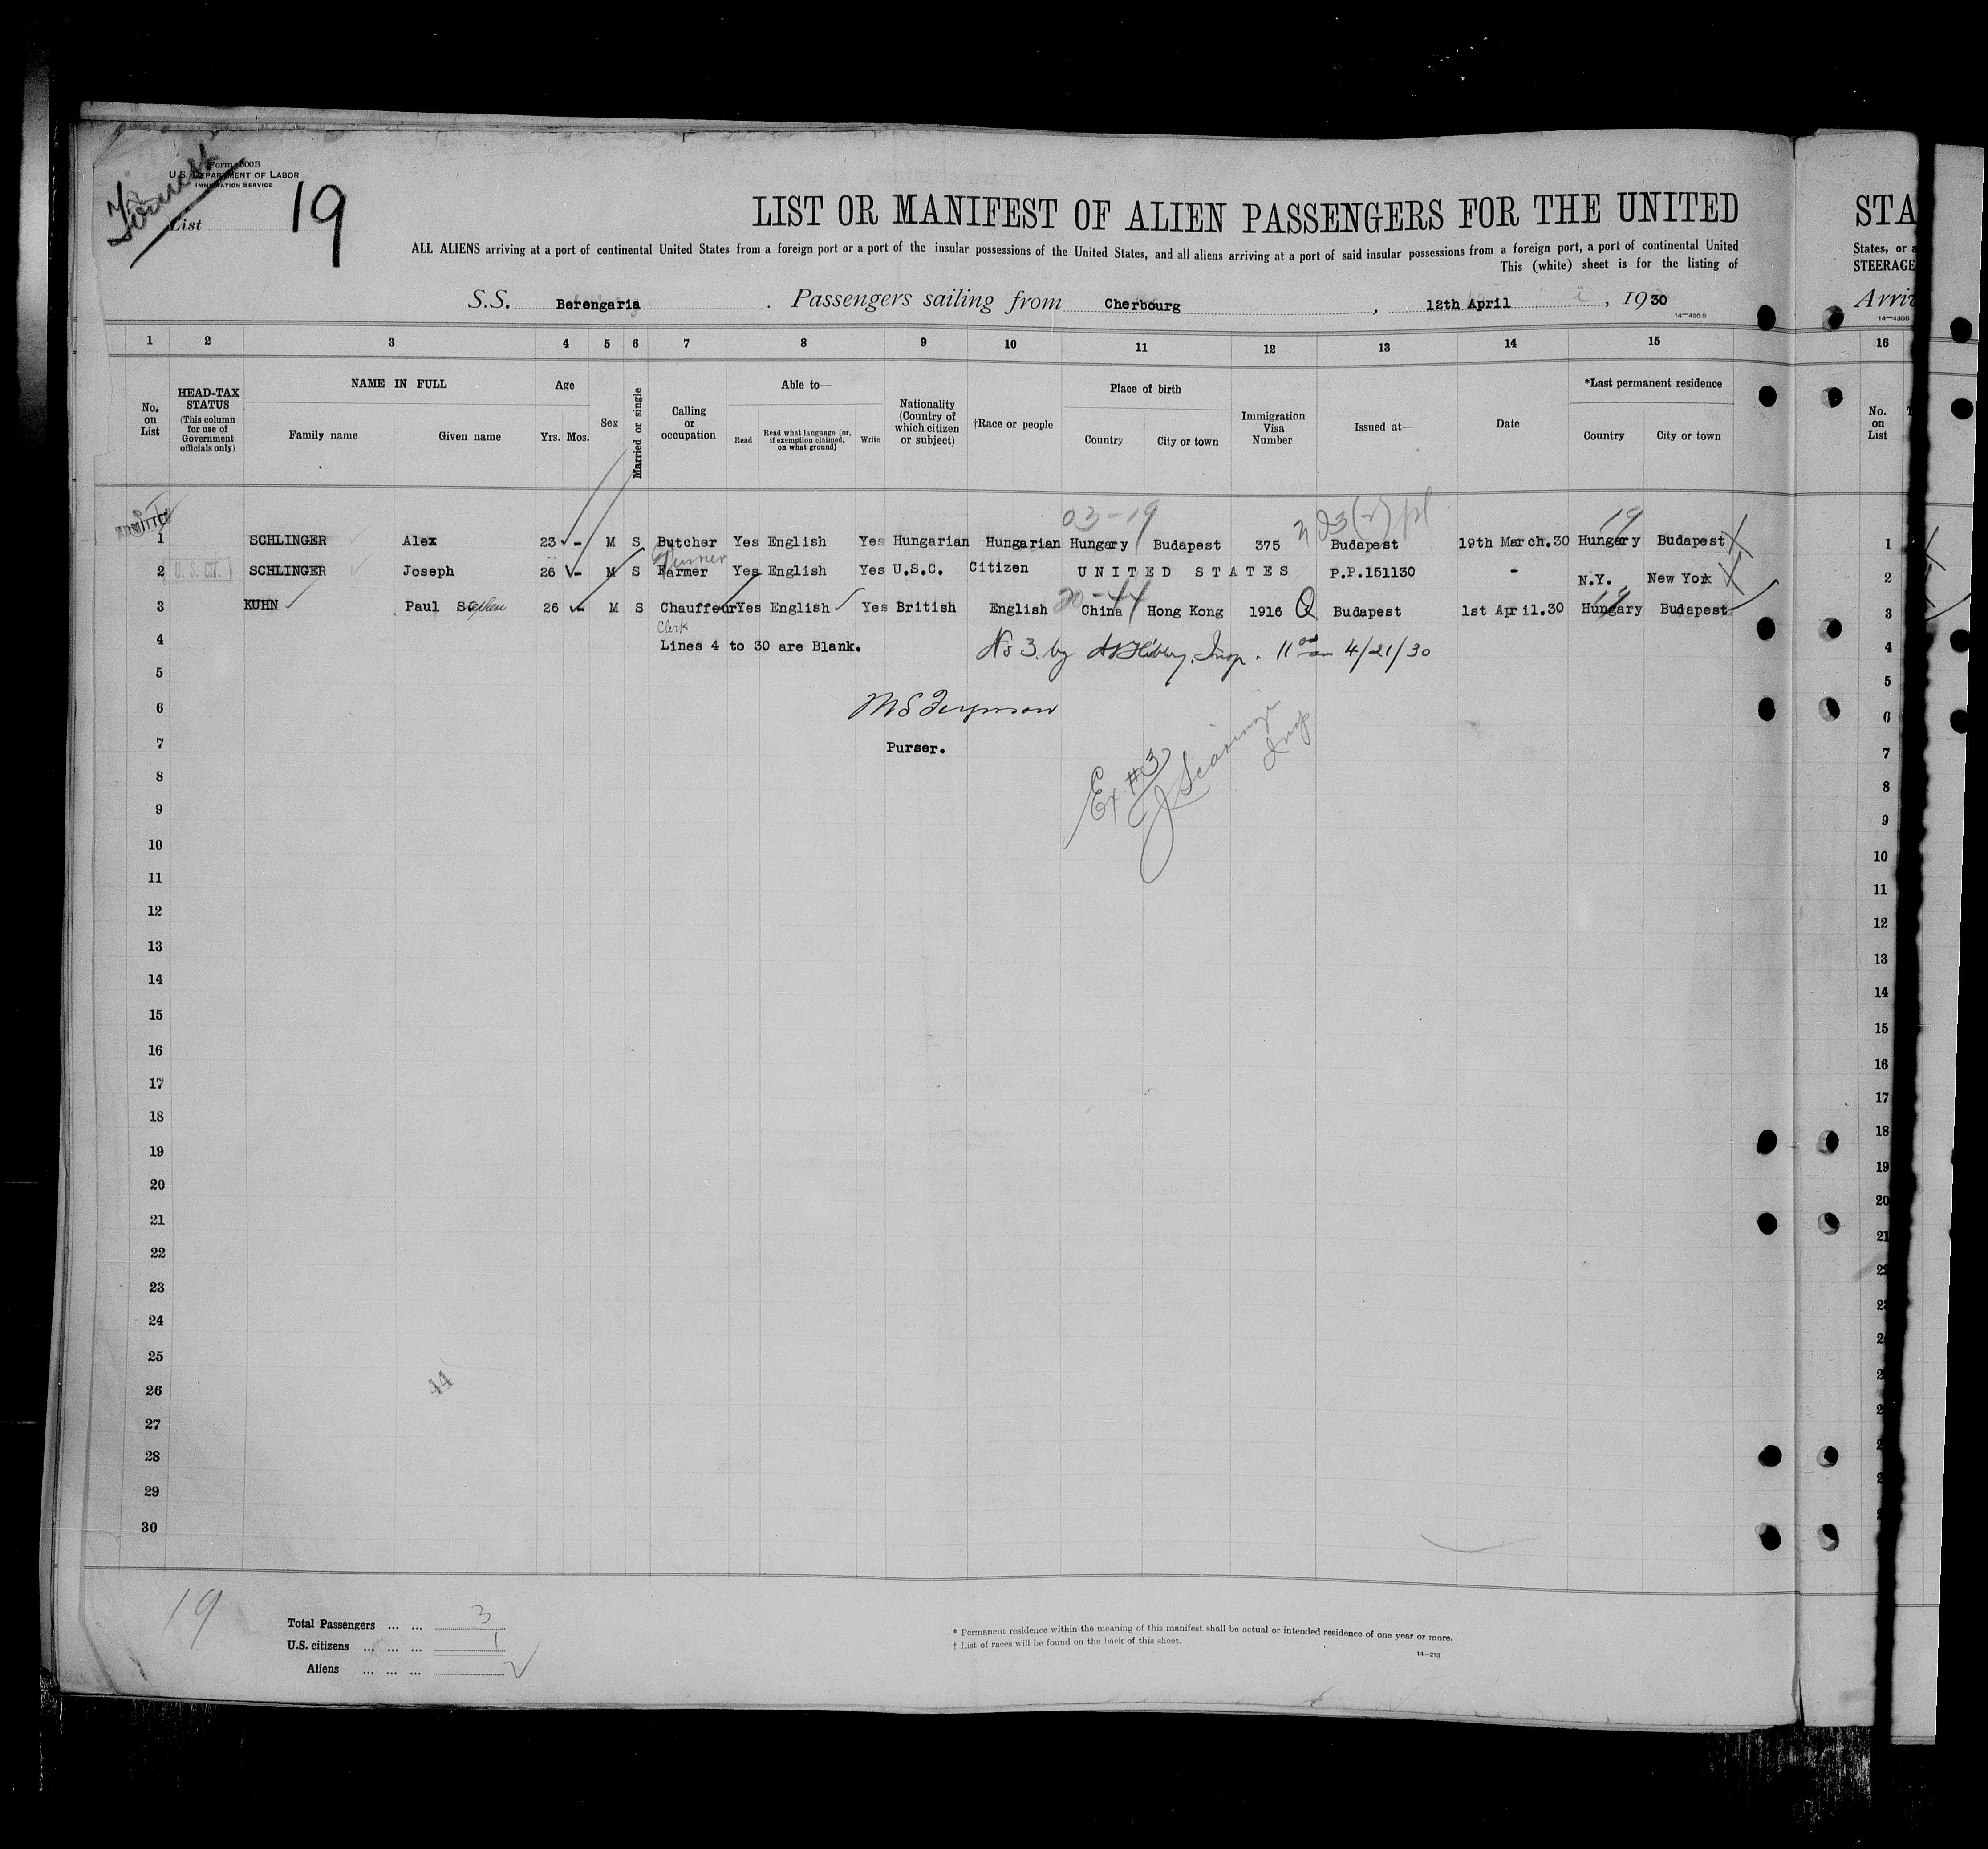 Tourist
Form 500B
U.S. DEPARTMENT OF LABOR
IMMIGRATION SERVICE
List 19
LIST OR MANIFEST OF ALIEN PASSENGERS FOR THE UNITED
STA
ALL ALIENS arriving at a port of continental United States from a foreign port or a port of the insular possessions of the United States, and all aliens arriving at a port of said insular possessions from a foreign port, a port of continental United
States, or a
This (white) sheet is for the listing of
STEERAGE
S.S. Berengaria. Passengers sailing from Cherbourg, 12th April, 1930
Arriv
14—430B
14—430B
1 2 3 4 5 6 7 8 9 10 11 12 13 14 15 16
No. on List
HEAD-TAX STATUS (This column for use of Government officials only)
NAME IN FULL
Family name Given name
Age
Yrs. Mos.
Sex
Married or single
Calling or occupation
Able to—
Read Read what language (or, if exemption claimed, on what ground) Write
Nationality (Country of which citizen or subject)
†Race or people
Place of birth
Country City or town
Immigration Visa Number
Issued at—
Date
*Last permanent residence
Country City or town
No. on List
ADMITTED
03-19 19
1 SCHLINGER Alex 23 - M S Butcher Yes English Yes Hungarian Hungarian Hungary Budapest 375 Budapest 19th March.30 Hungary Budapest 1
2 U.S. CIT. SCHLINGER Joseph 26 - M S Farmer Yes English Yes U.S.C. Citizen UNITED STATES P.P.151130 - N.Y. New York 2
20-44 19
3 KUHN Paul Stephen 26 - M S Chauffeur Yes English Yes British English China Hong Kong 1916 Q Budapest 1st April.30 Hungary Budapest 3
Clerk
4 Lines 4 to 30 are Blank. No 3. by Insp. 11 00 am 4/21/30 4
5 5
6 M S Ferguson 6
7 Purser. 7
8 Ex #3 Insp 8
9 9
10 10
11 11
12 12
13 13
14 14
15 15
16 16
17 17
18 18
19 19
20 20
21 21
22
23
24
25
26 44
27
28
29
30
19
Total Passengers ... ... 3
U.S. citizens ... ... ... 1
Aliens ... ... ... 2
* Permanent residence within the meaning of this manifest shall be actual or intended residence of one year or more.
† List of races will be found on the back of this sheet.
14—213